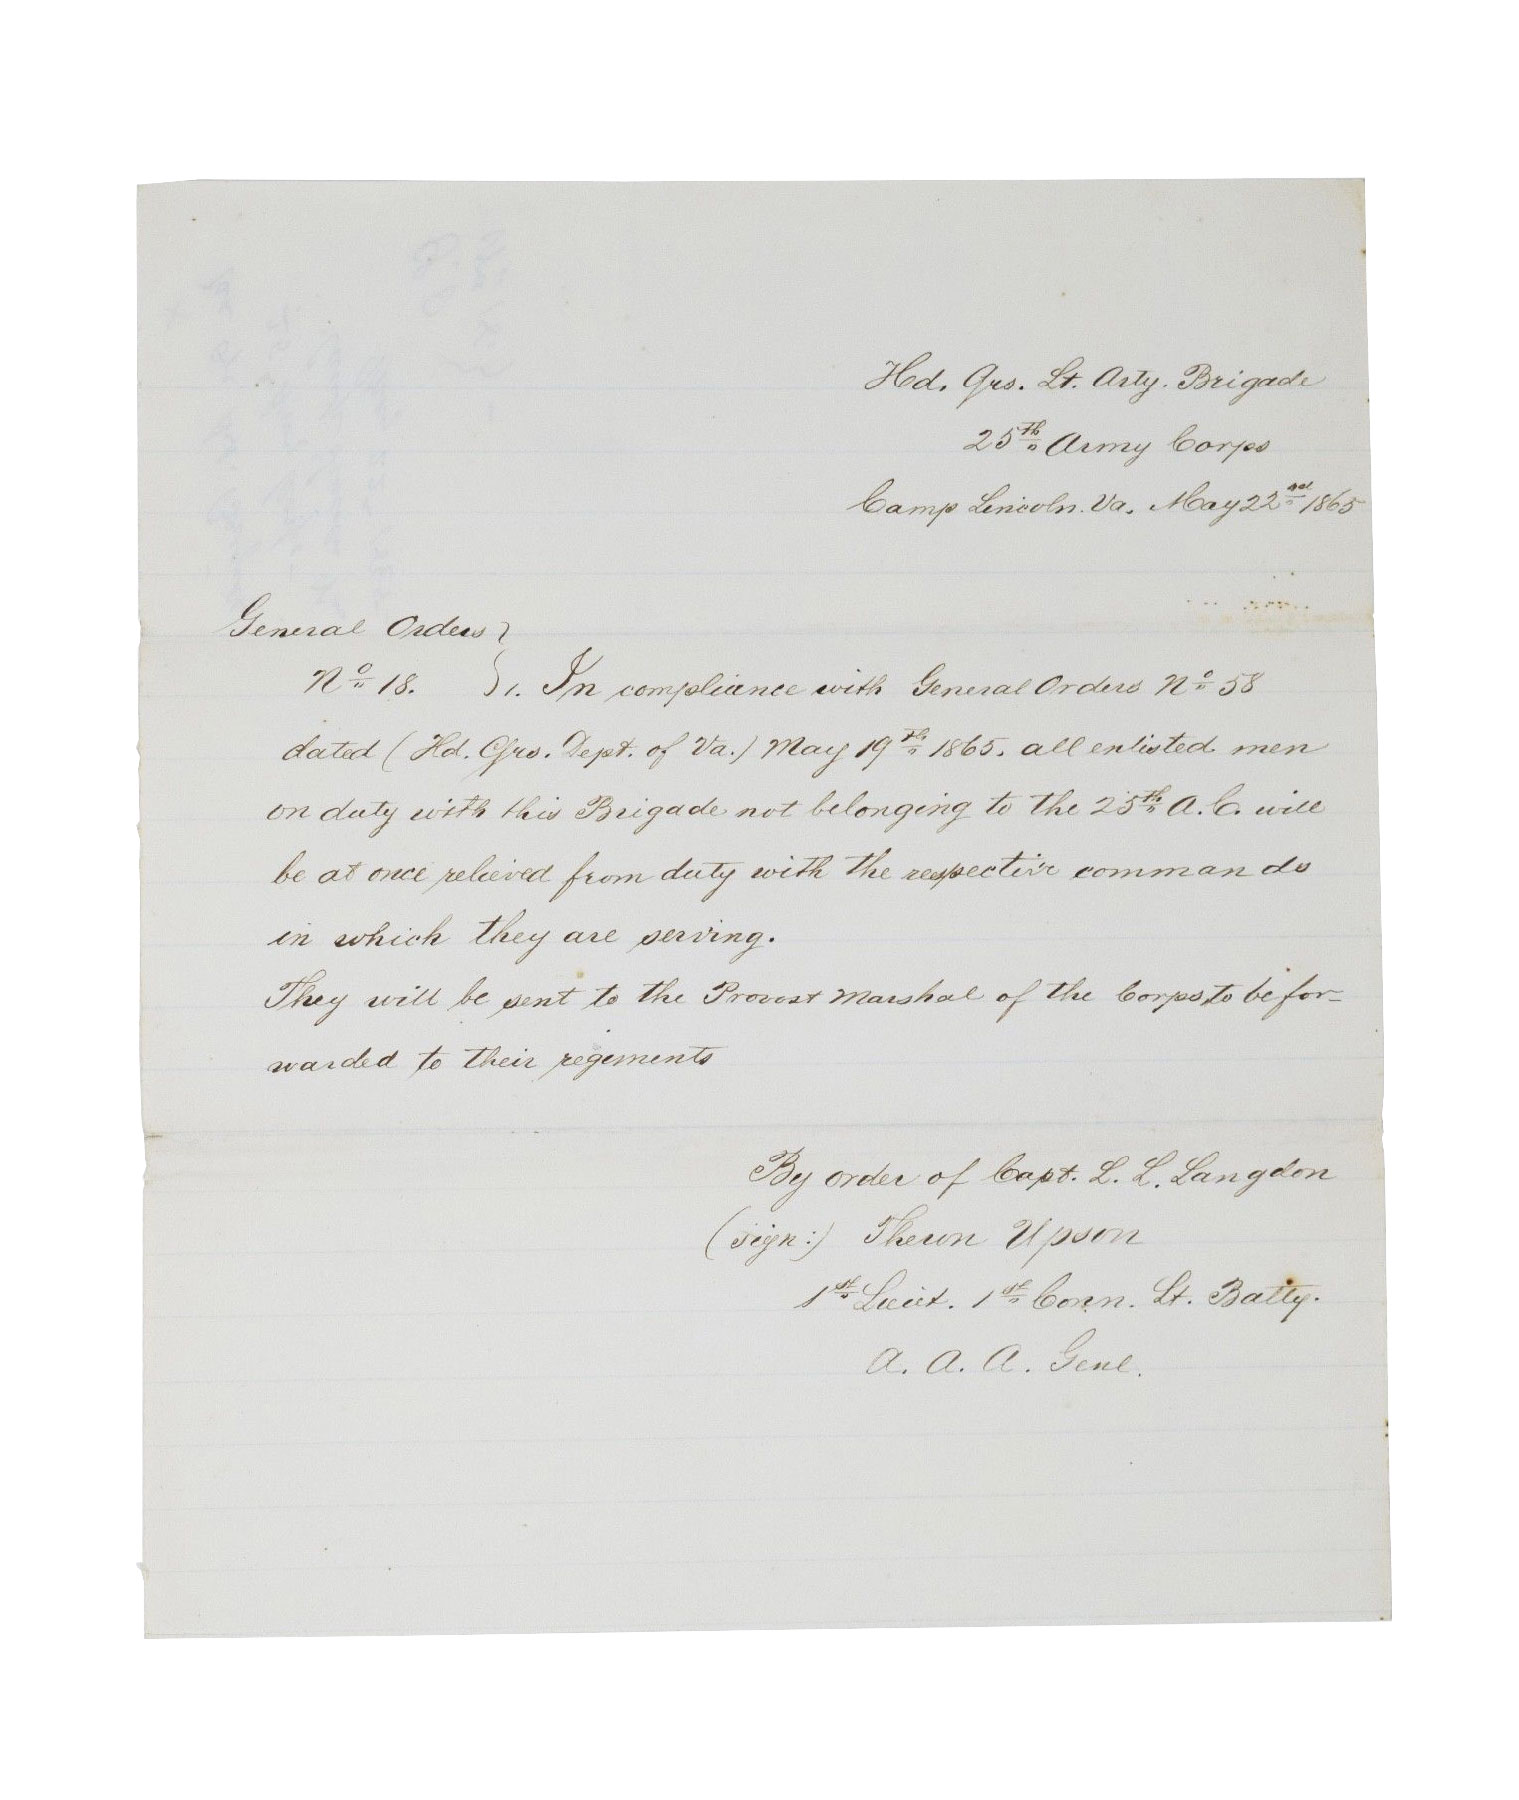 Hd. Qrs. Lt. Arty. Brigade
25th Army Corps
Camp Lincoln. Va. May 22nd 1865
General Orders }
No 18. } 1. In compliance with General Orders No 58
dated (Hd. Qrs. Dept. of Va.) May 19th 1865. all enlisted men
on duty with this Brigade not belonging to the 25th A.C. will
be at once relieved from duty with the respective commands
in which they are serving.
They will be sent to the Provost Marshal of the Corps to be for-
warded to their regements
By order of Capt. L. L. Langdon
(sign:) Theron Upson
1st Lieut. 1st Conn. Lt. Batty.
A. A. A. Genl.